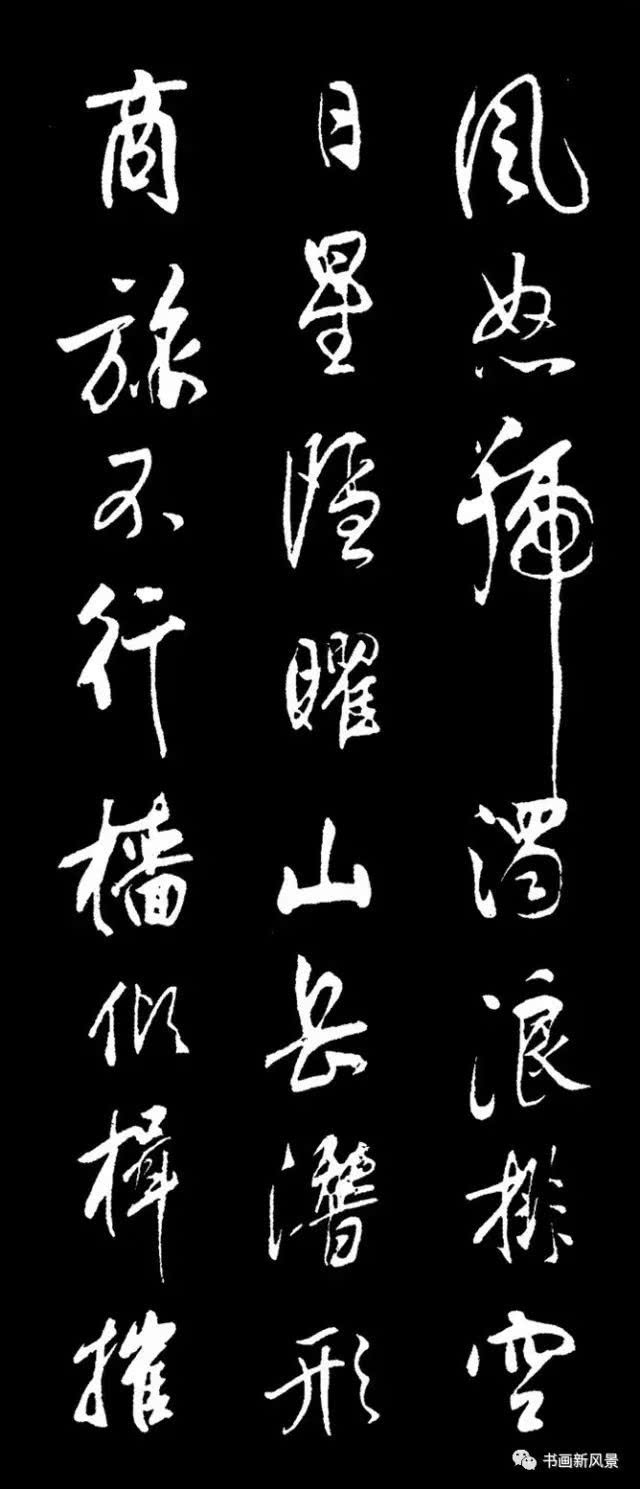 風怒號濁浪排空
日星隱曜山岳潛形
商旅不行檣傾楫摧
书画新风景